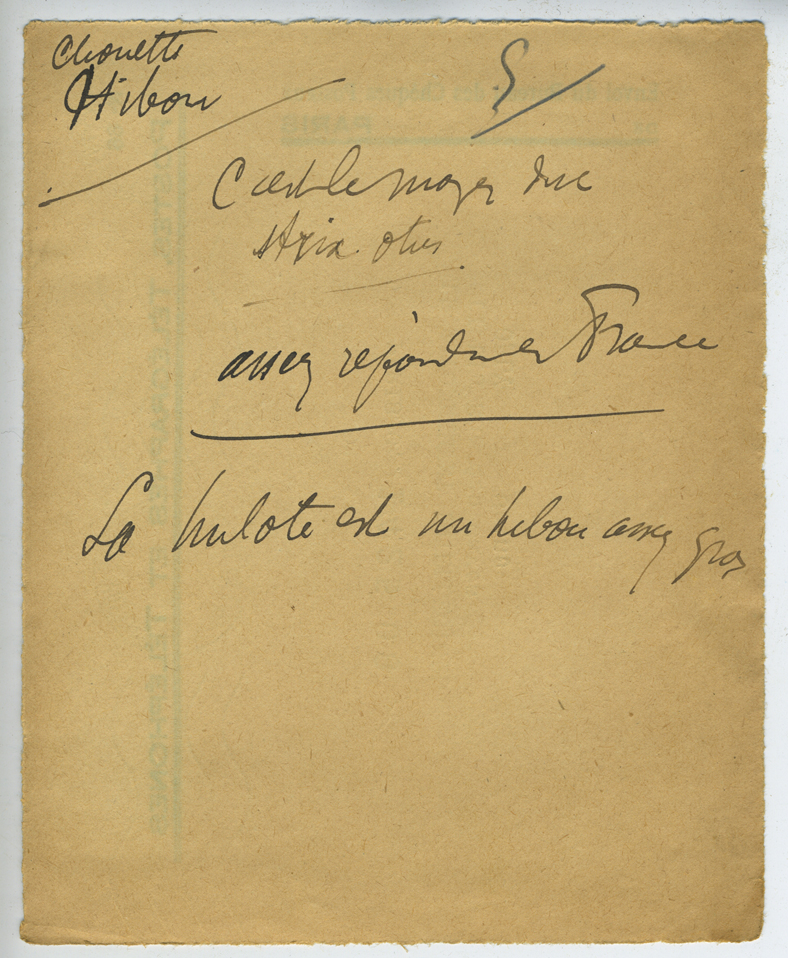 Chouette
Hibou
S
C'est le moyen duc
strix otus
assez répandu en France
La hulote est un hibou assez gros